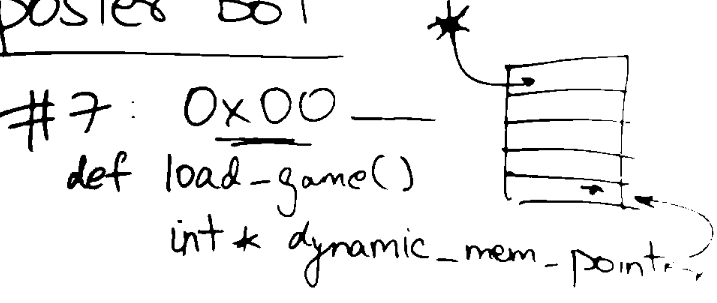 poster bot
#7: 0x00__
def load_game()
int * dynamic_mem_point...